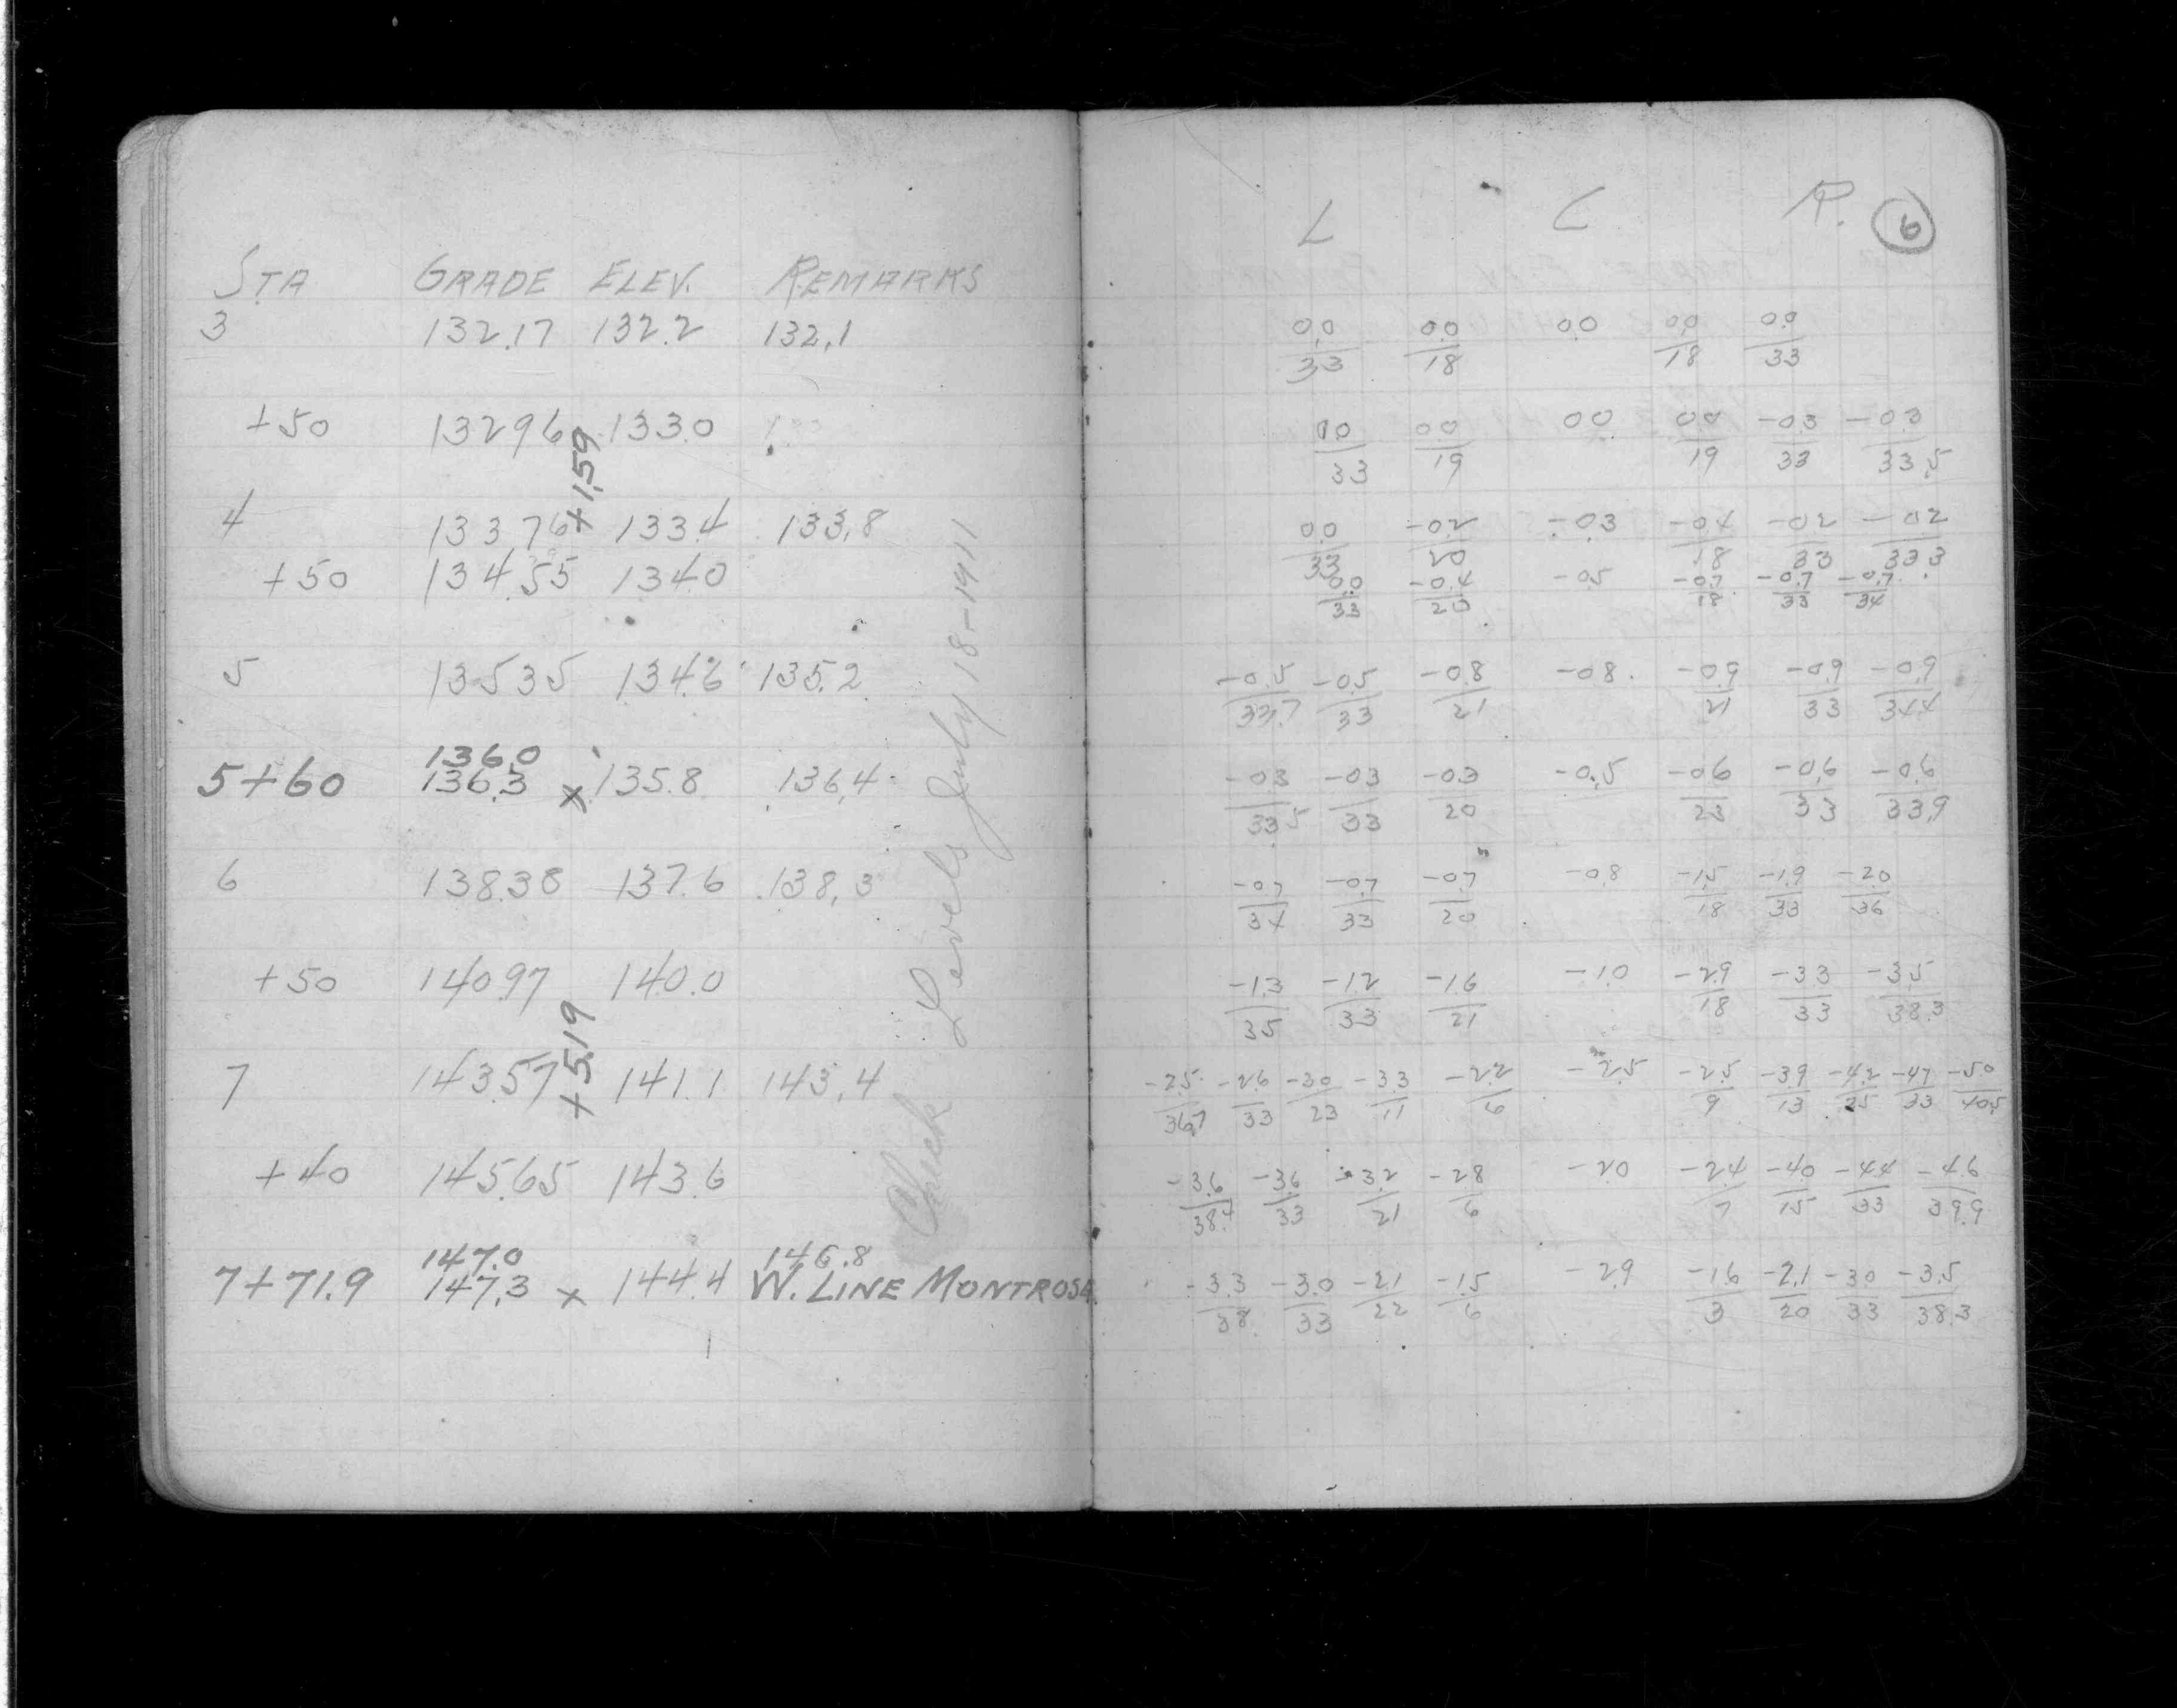 STA GRADE ELEV. REMARKS
3 132.17 132.2 132.1
+50 132.96 133.0
+1.59
4 133.76 133.4 133.8
+50 134.55 134.0
5 135.35 134.6 135.2
136.0
5+60 136.3 x 135.8 136.4
6 138.38 137.6 138.3
+50 140.97 140.0
+5.19
7 143.57 141.1 143.4
+40 145.65 143.6
147.0 146.8
7+71.9 147.3 x 144.4 W. LINE MONTROSE
Check Levels July 18-1911
L C R. 6
0.0 0.0 0.0 0.0 0.0
33 18 18 33
0.0 0.0 0.0 0.0 -0.3 -0.3
33 19 19 33 33.5
0.0 -0.2 -0.3 -0.4 -0.2 -0.2
33 20 18 33 33.3
0.0 -0.4 -0.5 -0.7 -0.7 -0.7
33 20 18 33 34
-0.5 -0.5 -0.8 -0.8 -0.9 -0.9 -0.9
33.7 33 21 21 33 34.4
-0.3 -0.3 -0.3 -0.5 -0.6 -0.6 -0.6
33.5 33 20 23 33 33.9
-0.7 -0.7 -0.7 -0.8 -1.5 -1.9 -2.0
34 33 20 18 33 36
-1.3 -1.2 -1.6 -1.0 -2.9 -3.3 -3.5
35 33 21 18 33 38.3
-2.5 -2.6 -3.0 -3.3 -2.2 -2.5 -2.5 -3.9 -4.2 -4.7 -5.0
36.7 33 23 11 6 9 13 25 33 40.5
-3.6 -3.6 -3.2 -2.8 -2.0 -2.4 -4.0 -4.4 -4.6
38.4 33 21 6 7 15 33 39.9
-3.3 -3.0 -2.1 -1.5 -2.9 -1.6 -2.1 -3.0 -3.5
38 33 22 6 3 20 33 38.3